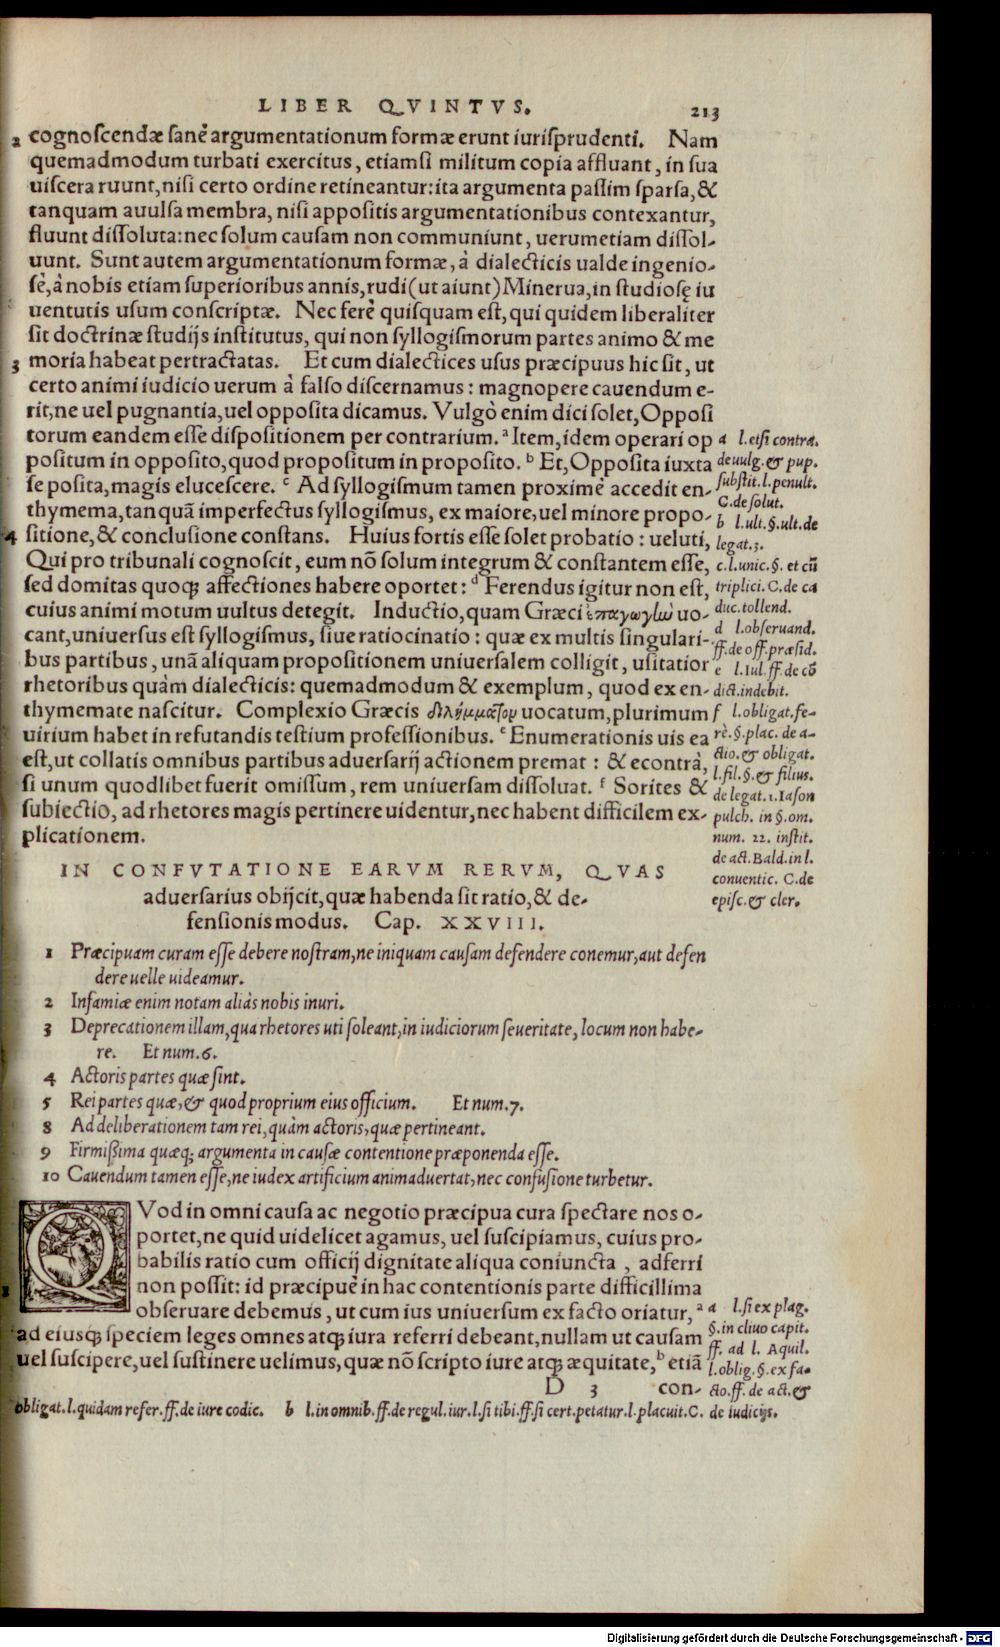 LIBER QVINTVS. 213
2 cognoscendæ sanè argumentationum formæ erunt iurisprudenti. Nam
quemadmodum turbati exercitus, etiamsi militum copia affluant, in sua
uiscera ruunt, nisi certo ordine retineantur: ita argumenta passim sparsa, &
tanquam auulsa membra, nisi appositis argumentationibus contexantur,
fluunt dissoluta: nec solum causam non communiunt, uerumetiam dissol-
uunt. Sunt autem argumentationum formæ, à dialecticis ualde ingenio-
sè, à nobis etiam superioribus annis, rudi (ut aiunt) Minerua, in studiosę iu
uentutis usum conscriptæ. Nec ferè quisquam est, qui quidem liberaliter
sit doctrinæ studijs institutus, qui non syllogismorum partes animo & me
3 moria habeat pertractatas. Et cum dialectices usus præcipuus hic sit, ut
certo animi iudicio uerum à falso discernamus: magnopere cauendum e-
rit, ne uel pugnantia, uel opposita dicamus. Vulgò enim dici solet, Opposi
torum eandem esse dispositionem per contrarium. a Item, idem operari op
positum in opposito, quod propositum in proposito. b Et, Opposita iuxta
se posita, magis elucescere. c Ad syllogismum tamen proximè accedit en-
thymema, tanquā imperfectus syllogismus, ex maiore, uel minore propo-
4 sitione, & conclusione constans. Huius fortis esse solet probatio: ueluti,
Qui pro tribunali cognoscit, eum nō solum integrum & constantem esse,
sed domitas quoq; affectiones habere oportet: d Ferendus igitur non est,
cuius animi motum uultus detegit. Inductio, quam Græci ἐπαγωγὴν uo-
cant, uniuersus est syllogismus, siue ratiocinatio: quæ ex multis singulari-
bus partibus, unā aliquam propositionem uniuersalem colligit, usitatior
rhetoribus quàm dialecticis: quemadmodum & exemplum, quod ex en-
thymemate nascitur. Complexio Græcis διλήμματον uocatum, plurimum
uirium habet in refutandis testium professionibus. e Enumerationis uis ea
est, ut collatis omnibus partibus aduersarij actionem premat: & econtrà,
si unum quodlibet fuerit omissum, rem uniuersam dissoluat. f Sorites &
subiectio, ad rhetores magis pertinere uidentur, nec habent difficilem ex-
plicationem.
a l. etsi contra.
de uulg. & pup.
substit. l. penult.
C. de solut.
b l. ult. §. ult. de
legat. 3.
c. l. unic. §. et cū
triplici. C. de ca
duc. tollend.
d l. obseruand.
ff. de off. præsid.
e l. Iul. ff. de cō
dict. indebit.
f l. obligat. fe-
rè. §. plac. de a-
ctio. & obligat.
l. fil. §. & filius.
de legat. 1. Iason
pulch. in §. om.
num. 22. instit.
de act. Bald. in l.
conuentic. C. de
episc. & cler.
IN CONFVTATIONE EARVM RERVM, QVAS
aduersarius obijcit, quæ habenda sit ratio, & de-
fensionis modus. Cap. XXVIII.
1 Præcipuam curam esse debere nostram, ne iniquam causam defendere conemur, aut defen
dere uelle uideamur.
2 Infamiæ enim notam aliàs nobis inuri.
3 Deprecationem illam, qua rhetores uti soleant, in iudiciorum seueritate, locum non habe-
re. Et num. 6.
4 Actoris partes quæ sint.
5 Rei partes quæ, & quod proprium eius officium. Et num. 7.
8 Ad deliberationem tam rei, quàm actoris, quæ pertineant.
9 Firmißima quæq; argumenta in causæ contentione præponenda esse.
10 Cauendum tamen esse, ne iudex artificium animaduertat, nec confusione turbetur.
QVod in omni causa ac negotio præcipua cura spectare nos o-
portet, ne quid uidelicet agamus, uel suscipiamus, cuius pro-
babilis ratio cum officij dignitate aliqua coniuncta, adferri
1 non possit: id præcipuè in hac contentionis parte difficillima
obseruare debemus, ut cum ius uniuersum ex facto oriatur, a
ad eiusq; speciem leges omnes atq; iura referri debeant, nullam ut causam
uel suscipere, uel sustinere uelimus, quæ nō scripto iure atq; æquitate, b etiā
D 3 con-
a l. si ex plag.
§. in cliuo capit.
ff. ad l. Aquil.
l. oblig. §. ex fa-
cto. ff. de act. &
obligat. l. quidam refer. ff. de iure codic. b l. in omnib. ff. de regul. iur. l. si tibi. ff. si cert. petatur. l. placuit. C. de iudicijs.
Digitalisierung gefördert durch die Deutsche Forschungsgemeinschaft - DFG